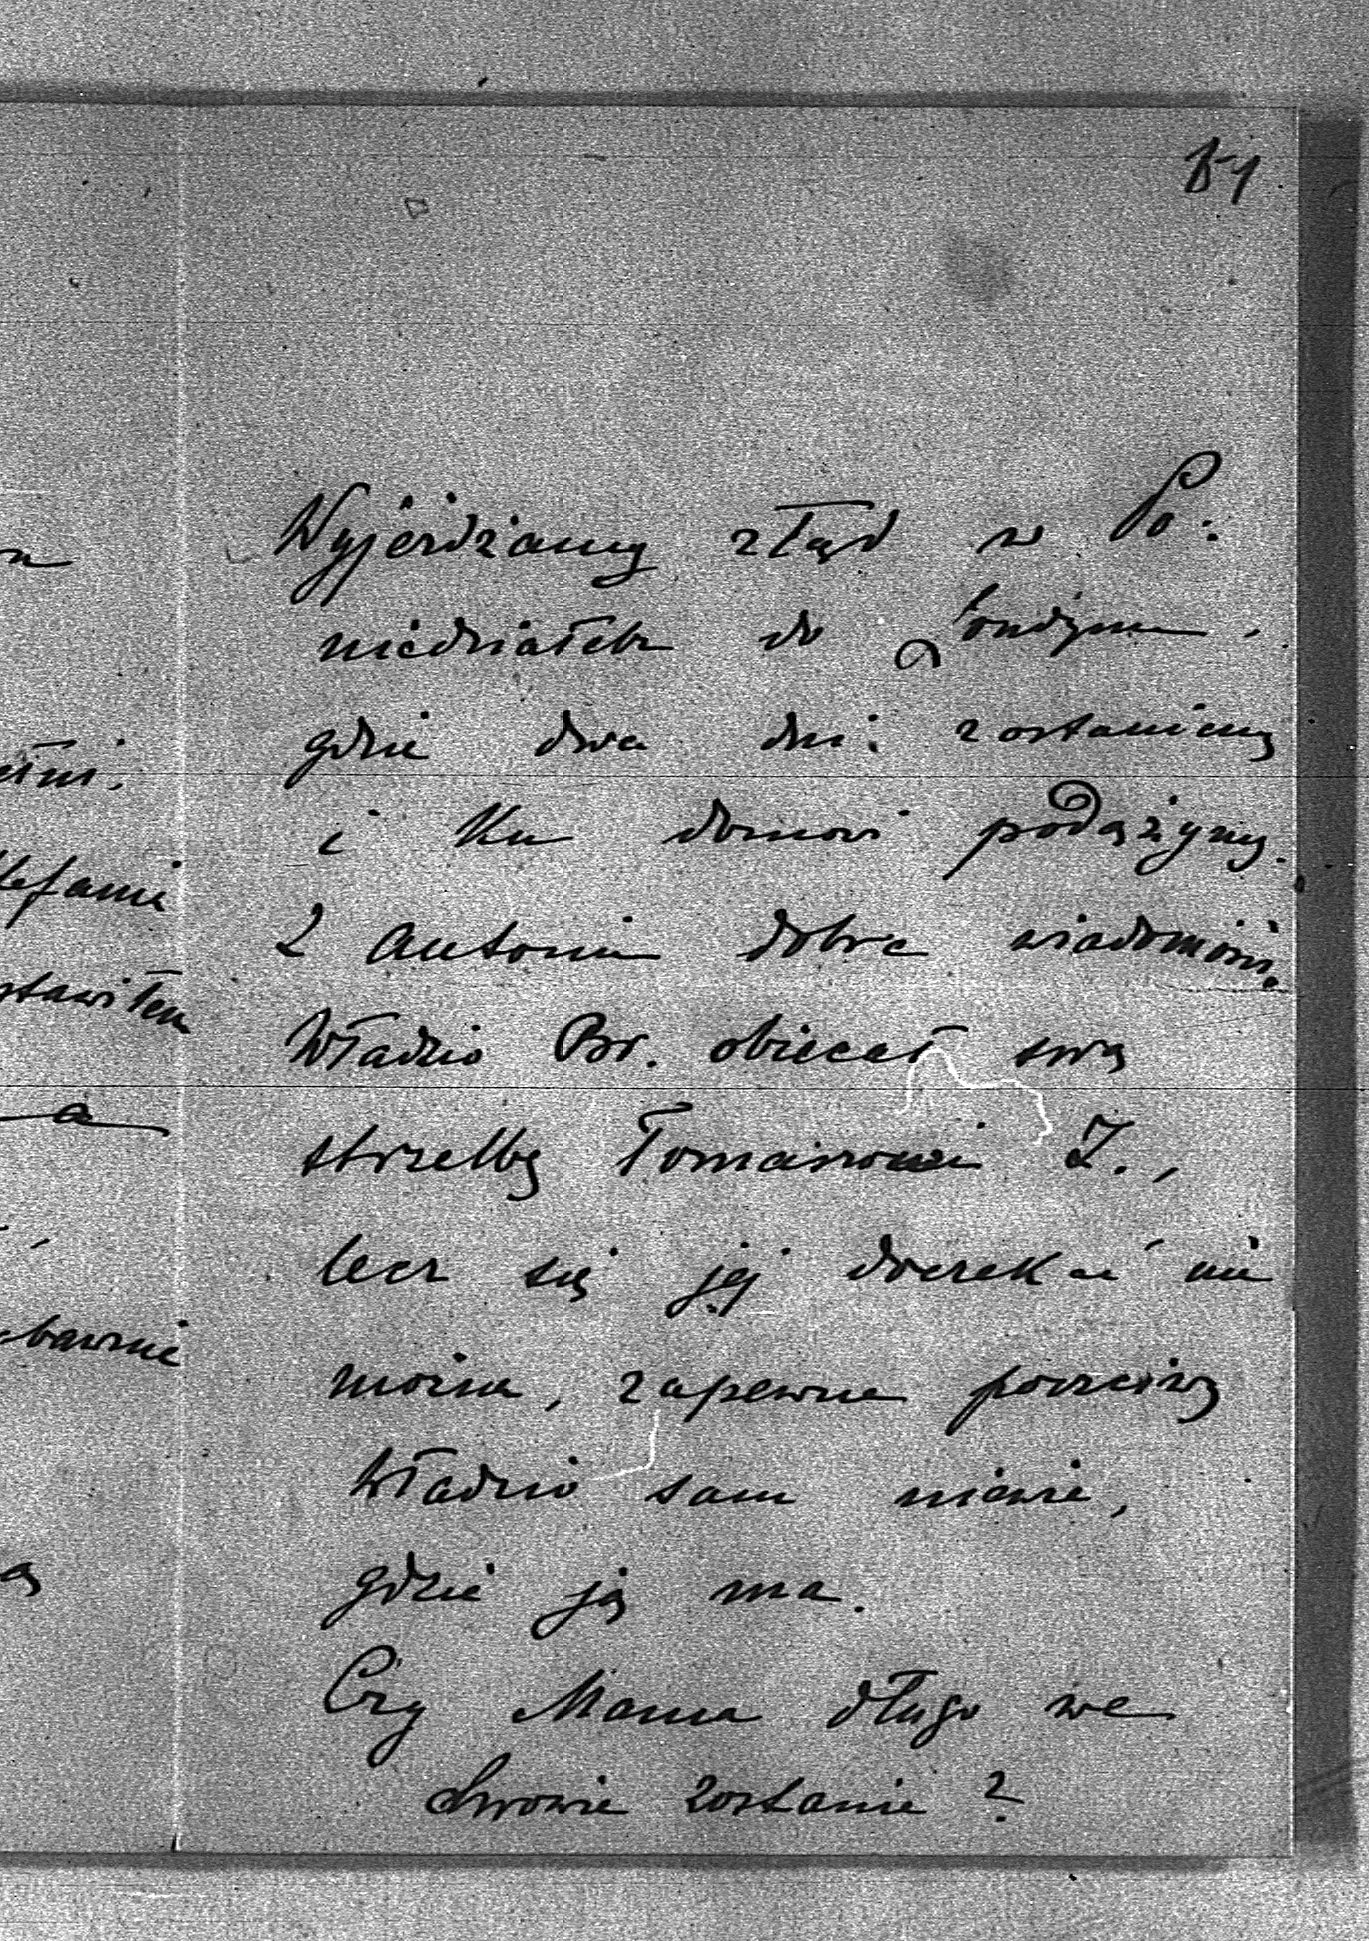 51
Wyjeżdżamy ztąd w Po:
niedziałek do Londynu.
gdzie dwa dni zostaniemy
i ku domowi podążymy.
Z Antonin dobre wiadomości.
Władzio Br. obiecał swą
strzelbę Tomaszowi Z.,
lecz się jej doczekać nie
można, zapewne poczciwy
Władzio sam niewie,
gdzie ją ma.
Czy Mama długo we
Lwowie zostanie?